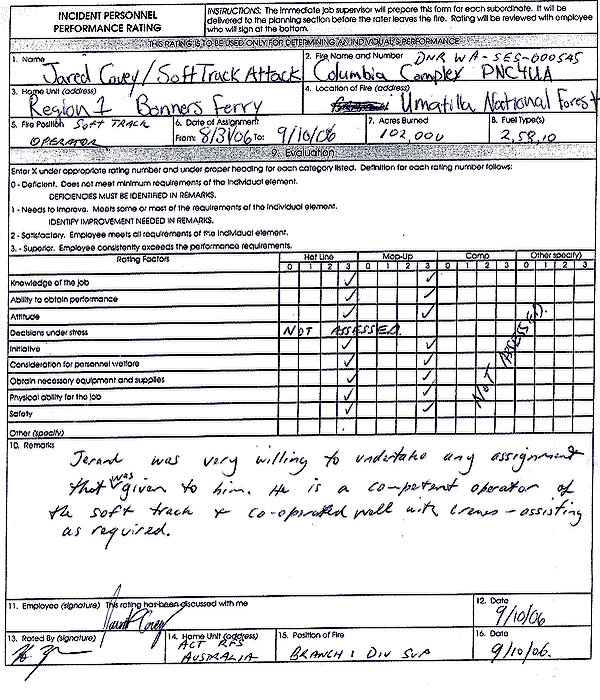 INCIDENT PERSONNEL
PERFORMANCE RATING
INSTRUCTIONS: The immediate job supervisor will prepare this form for each subordinate. It will be
delivered to the planning section before the rater leaves the fire. Rating will be reviewed with employee
who will sign at the bottom.
THIS RATING IS TO BE USED ONLY FOR DETERMINING AN INDIVIDUAL'S PERFORMANCE
1. Name
Jared Covey / Soft Track Attack
2. Fire Name and Number DNR WA-SES-000545
Columbia Complex PNC4UA
3. Home Unit (address)
Region 1 Bonners Ferry
4. Location of Fire (address)
Umatilla National Forest
5. Fire Position SOFT TRACK
OPERATOR
6. Date of Assignment
From: 8/31/06 To: 9/10/06
7. Acres Burned
102,000
8. Fuel Type(s)
2,58,10
9. Evaluation
Enter X under appropriate rating number and under proper heading for each category listed. Definition for each rating number follows:
0 - Deficient. Does not meet minimum requirements of the individual element.
DEFICIENCIES MUST BE IDENTIFIED IN REMARKS.
1 - Needs to Improve. Meets some or most of the requirements of the individual element.
IDENTIFY IMPROVEMENT NEEDED IN REMARKS.
2 - Satisfactory. Employee meets all requirements of the individual element.
3. - Superior. Employee consistently exceeds the performance requirements.
Rating Factors Hot Line Mop-Up Camp Other (specify)
0 1 2 3 0 1 2 3 0 1 2 3 0 1 2 3
Knowledge of the job ✓ ✓
Ability to obtain performance ✓ ✓
Attitude ✓ ✓
Decisions under stress NOT ASSESSED.
Initiative ✓ ✓
Consideration for personnel welfare ✓ ✓
Obtain necessary equipment and supplies ✓ ✓
Physical ability for the job ✓ ✓
Safety ✓ ✓
NOT ASSESSED.
Other (specify)
10. Remarks
Jerard was very willing to undertake any assignment
that was given to him. He is a competent operator of
the soft track & co-operated well with crews - assisting
as required.
11. Employee (signature) This rating has been discussed with me
Jared Covey
12. Date
9/10/06
13. Rated By (signature)
14. Home Unit (address)
ACT RFS
AUSTRALIA
15. Position of Fire
BRANCH 1 DIV SUP
16. Date
9/10/06.